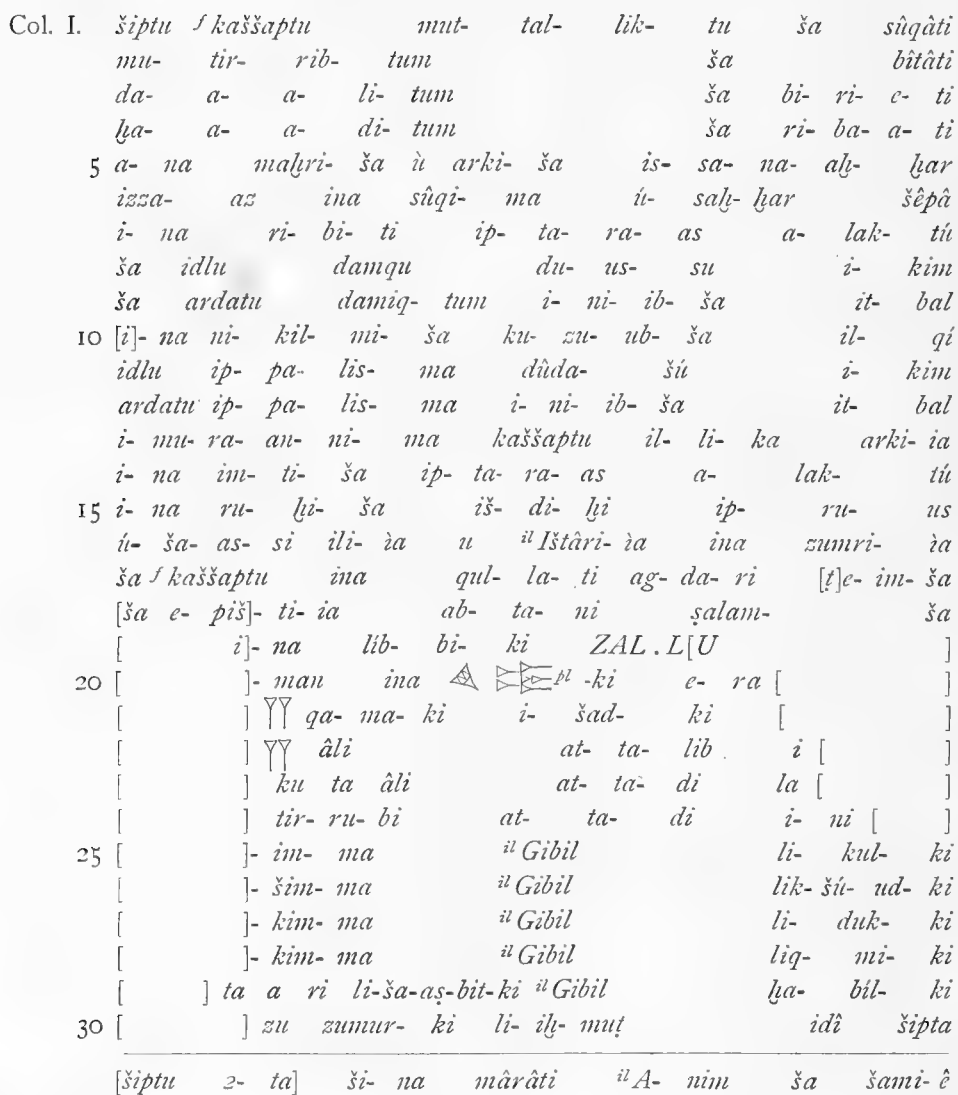 Col. I. šiptu ᶠ kaššaptu mut- tal- lik- tu ša sûqâti
mu- tir- rib- tum ša bîtâti
da- a- a- li- tum ša bi- ri- e- ti
ḫa- a- a- di- tum ša ri- ba- a- ti
5 a- na maḫri- ša ù arki- ša is- sa- na- aḫ- ḫar
izza- az ina sûqi- ma ú- saḫ- ḫar šêpâ
i- na ri- bi- ti ip- ta- ra- as a- lak- tú
ša idlu damqu du- us- su i- kim
ša ardatu damiq- tum i- ni- ib- ša it- bal
10 [i]- na ni- kil- mi- ša ku- zu- ub- ša il- qí
idlu ip- pa- lis- ma dûda- šú i- kim
ardatu ip- pa- lis- ma i- ni- ib- ša it- bal
i- mu- ra- an- ni- ma kaššaptu il- li- ka arki- ia
i- na im- ti- ša ip- ta- ra- as a- lak- tú
15 i- na ru- ḫi- ša iš- di- ḫi ip- ru- us
ú- ša- as- si ili- ìa u ⁱˡ Ištâri- ìa ina zumri- ìa
ša ᶠ kaššaptu ina qul- la- ti ag- da- ri [t]e- im- ša
[ša e- piš]- ti- ia ab- ta- ni ṣalam- ša
[ i]- na líb- bi- ki ZAL . L[U ]
20 [ ]- man ina ᵖˡ -ki e- ra [ ]
[ ] qa- ma- ki i- šad- ki [ ]
[ ] âli at- ta- lib i [ ]
[ ] ku ta âli at- ta- di la [ ]
[ ] tir- ru- bi at- ta- di i- ni [ ]
25 [ ]- im- ma ⁱˡ Gibil li- kul- ki
[ ]- šim- ma ⁱˡ Gibil lik- šú- ud- ki
[ ]- kim- ma ⁱˡ Gibil li- duk- ki
[ ]- kim- ma ⁱˡ Gibil liq- mi- ki
[ ] ta a ri li-ša-aṣ-bit-ki ⁱˡ Gibil ḫa- bíl- ki
30 [ ] zu zumur- ki li- iḫ- muṭ idî šipta
[šiptu 2- ta] ši- na mârâti ⁱˡ A- nim ša šami- ê